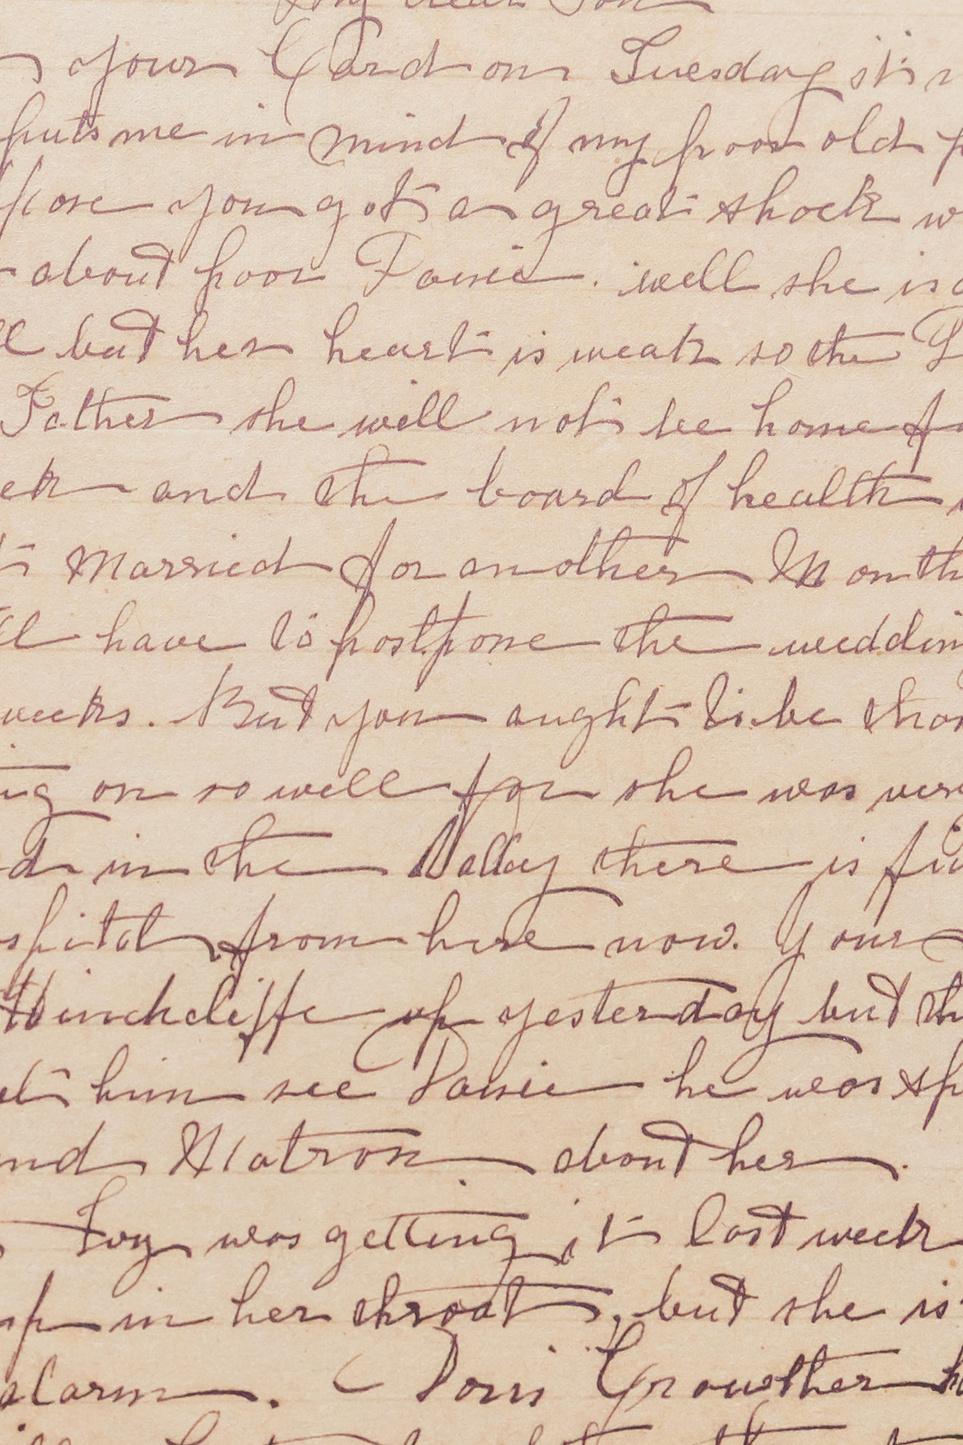 My dear Son
your Card on Tuesday it's
puts me in mind of my poor old
pose you got a great shock w
about poor Janie. well she is
ll but her heart is weak so the
Father she will not be home f
ek and the board of health
t married for another Month
ll have to postpone the wedding
weeks. But you aught to be than
ing on so well for she was very
d in the Valley there is fiv
spital from here now. Your
Hinchcliffe up yesterday but th
et him see Janie he was sp
nd Matron about her.
Ivy was getting it last week
up in her throat, but she is
alarm. Doris Growther h